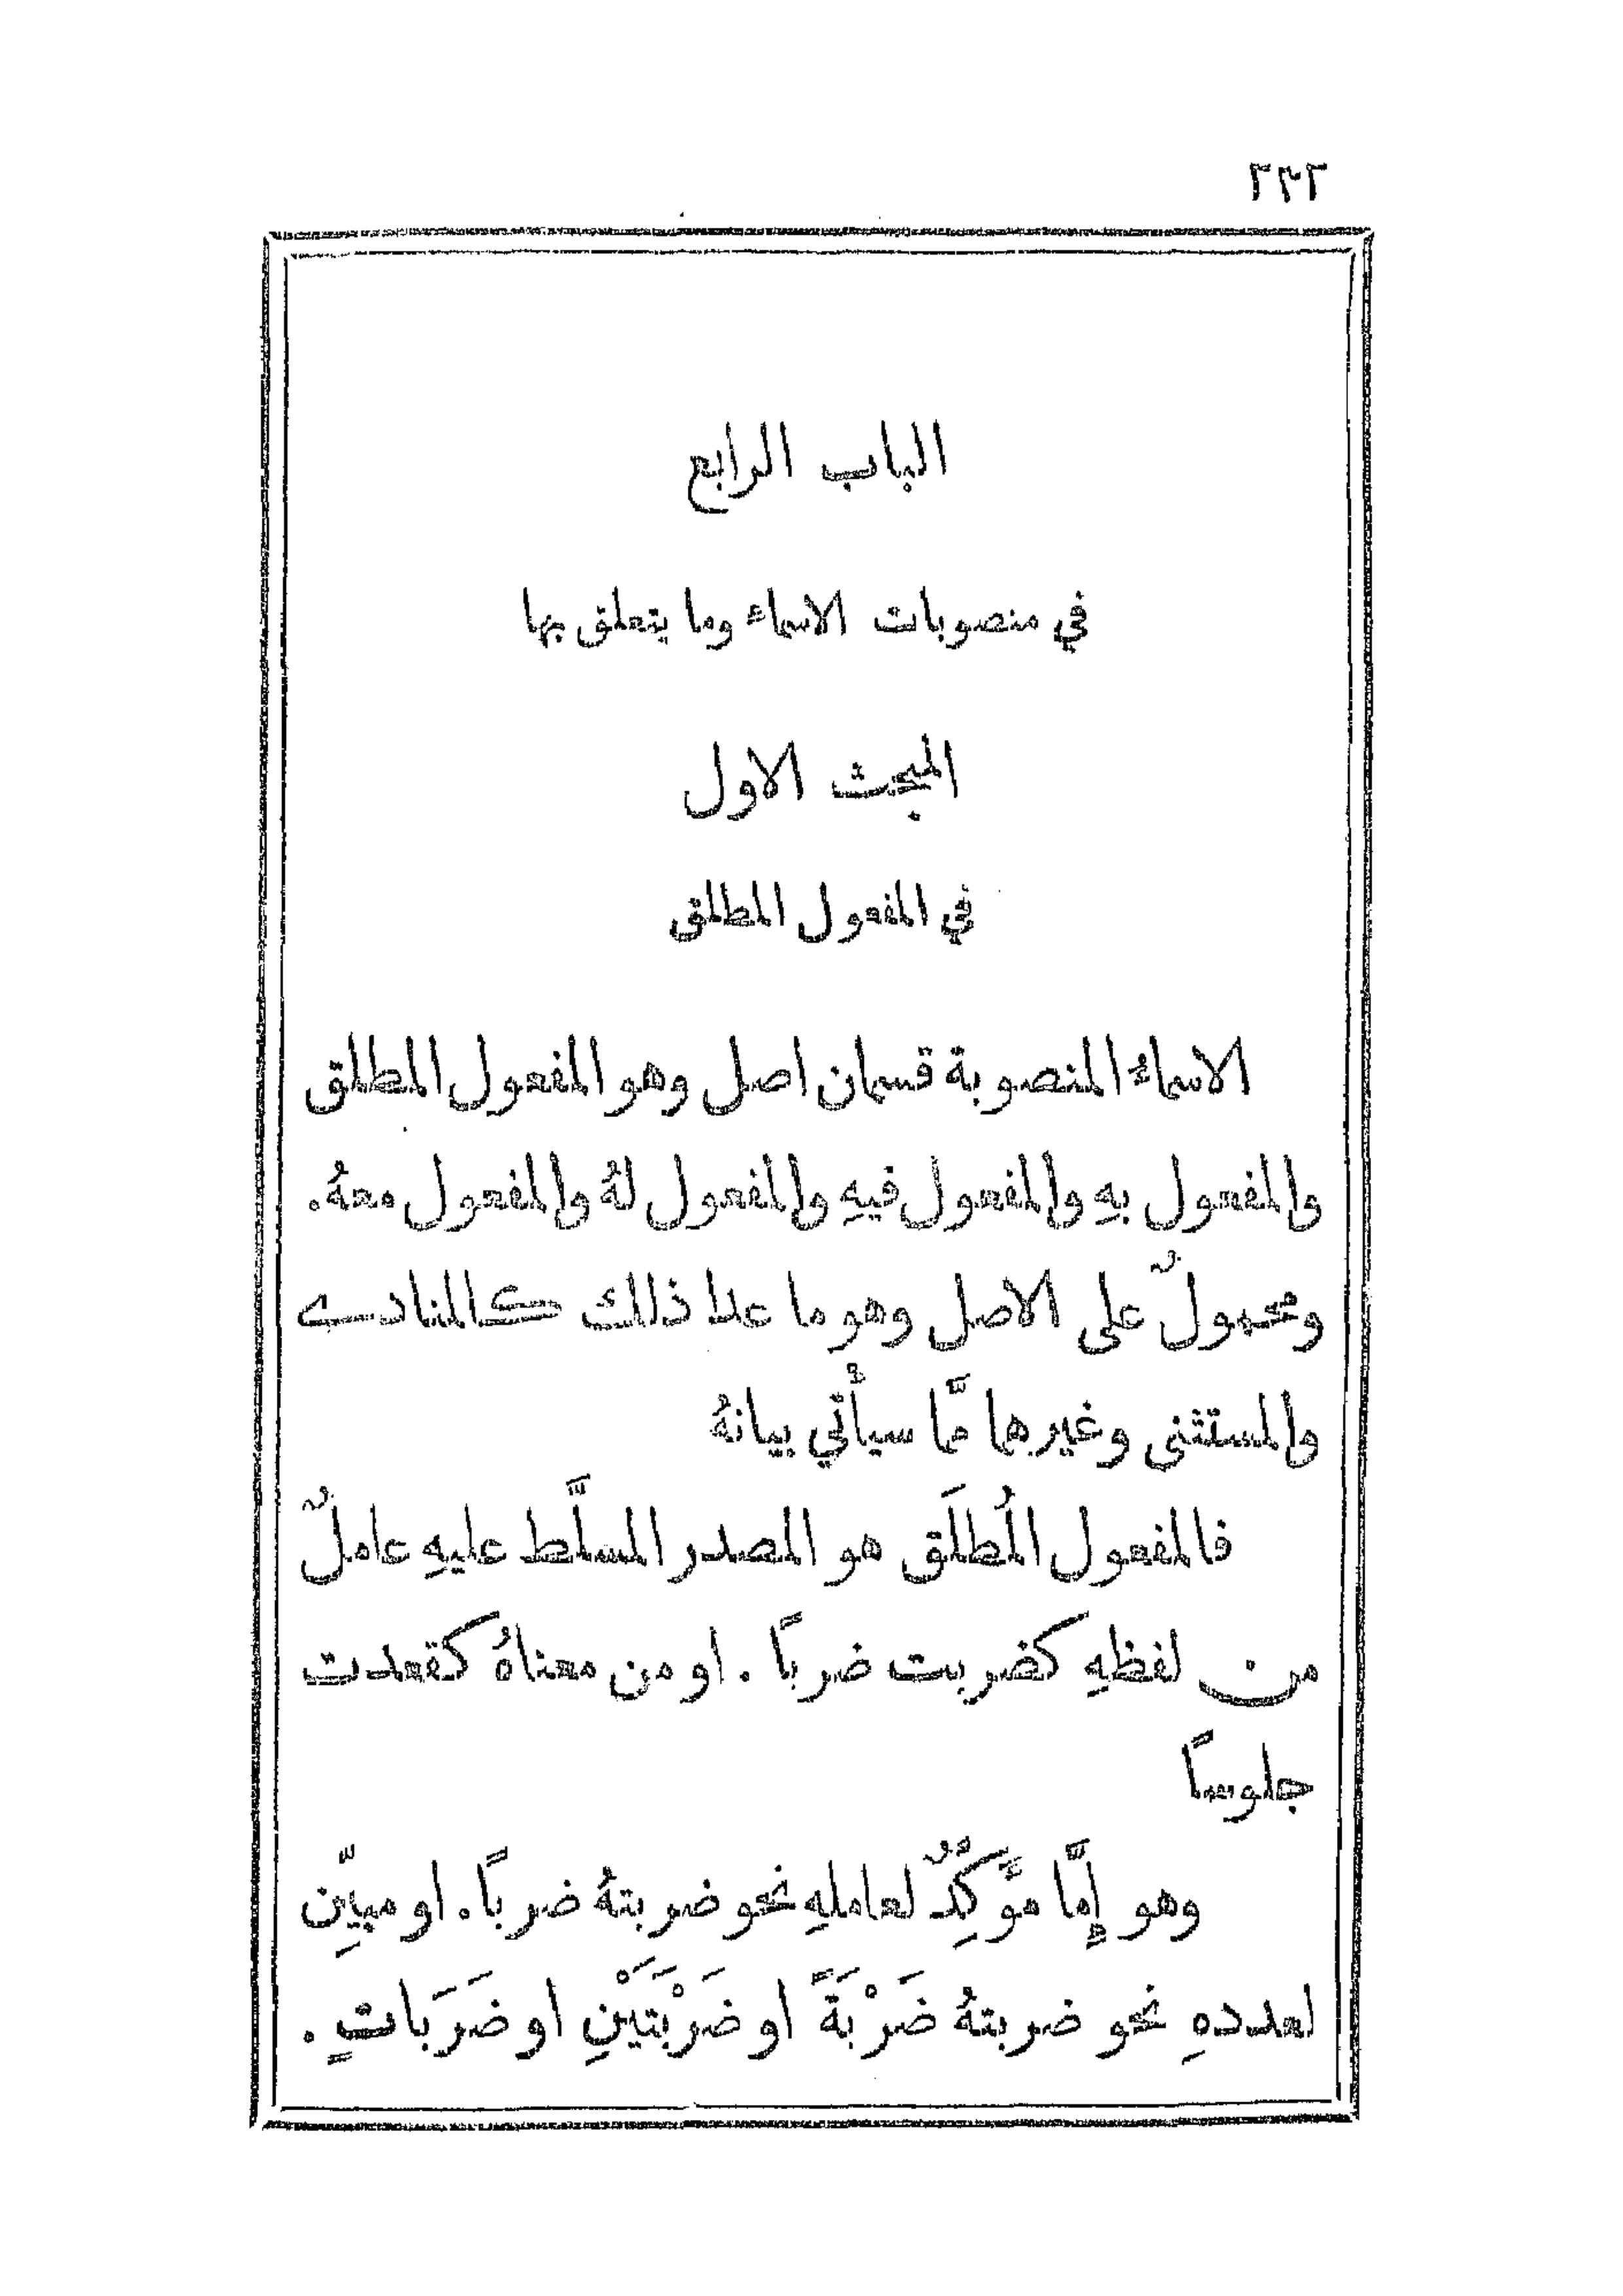 ٢٣٢
الباب الرابع
في منصوبات الاسماء وما يتعلق بها
المبحث الاول
في المفعول المطلق
الاسماءُ المنصوبة قسمان اصل وهو المفعول المطلق
والمفعول بهِ والمفعول فيهِ والمفعول لهُ والمفعول معهُ.
ومحمولٌ على الاصل وهو ما عدا ذلك كالمنادى
والمستثنى وغيرهما ممَّا سيأْتي بيانهُ
فالمفعول المُطلَق هو المصدر المسلَّط عليهِ عاملٌ
من لفظهِ كضربت ضربًا. او من معناهُ كقعدت
جلوسًا
وهو إِمَّا مؤَكِّدٌ لعاملهِ نحو ضربتهُ ضربًا. او مبيِّن
لعددهِ نحو ضربتهُ ضَرْبَةً او ضَرْبَتَيْنِ او ضَرَبَاتٍ.